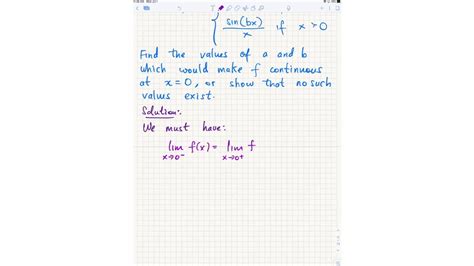 { sin(bx)/x if x > 0
Find the values of a and b
which would make f continuous
at x=0, or show that no such
values exist.
Solution:
We must have:
lim x→0⁻ f(x) = lim x→0⁺ f